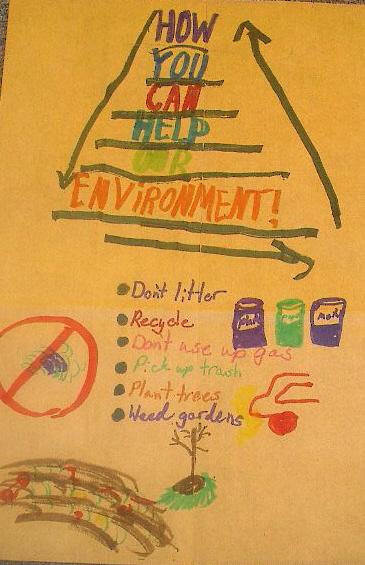 HOW
YOU
CAN
HELP
OUR
ENVIRONMENT!
Don't litter
Recycle
Don't use up gas
Pick up trash
Plant trees
Weed gardens